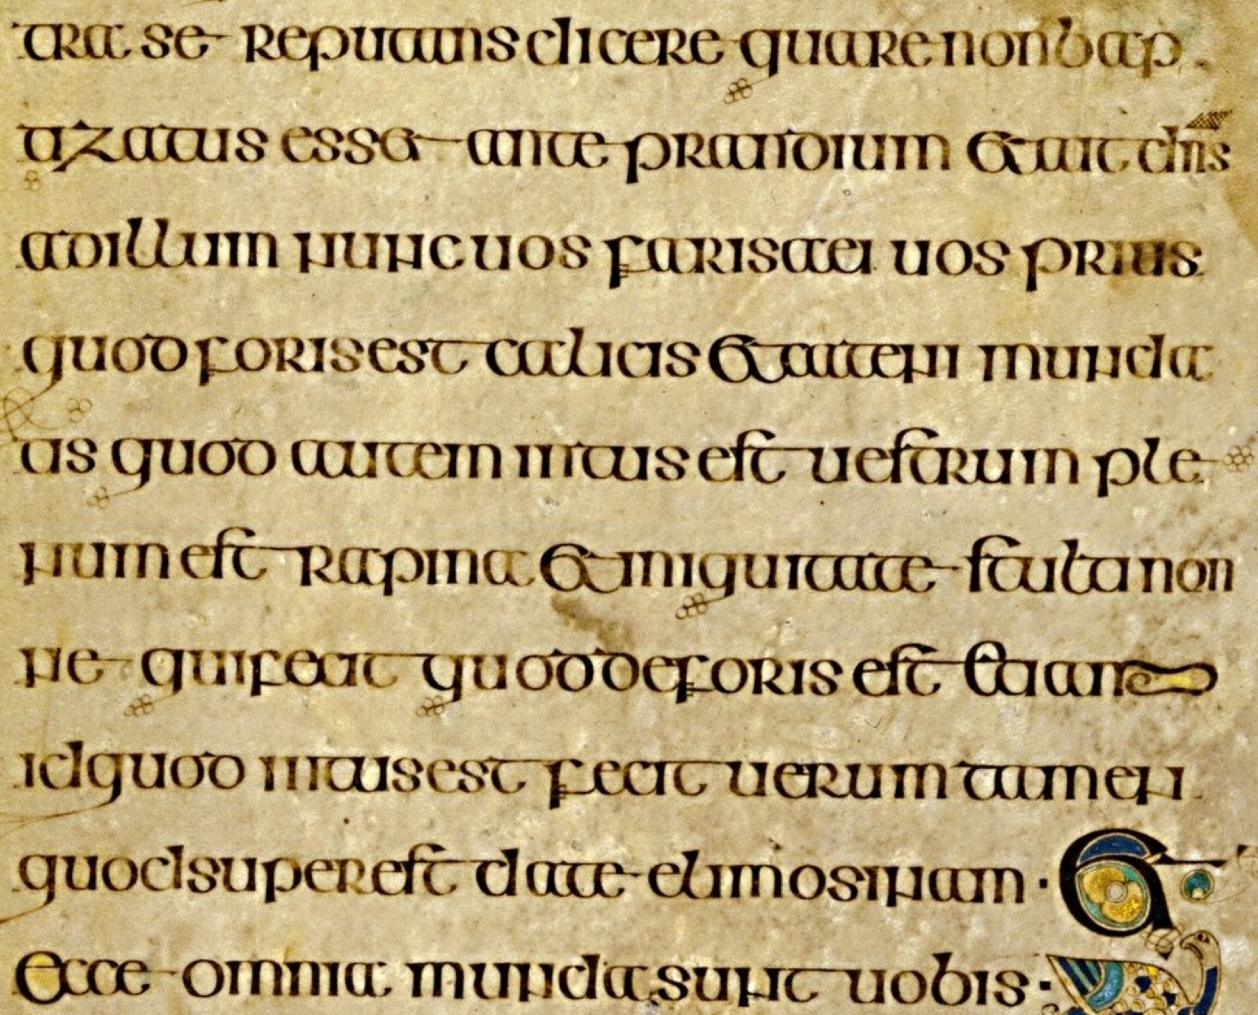 tra se reputans dicere quare non bap
tizatus esset ante prandium et ait dns
ad illum nunc uos farisaei uos prius
quod foris est calicis et catini munda
tis quod autem intus est uestrum ple
num est rapina et iniquitate stulti non
ne qui fecit quod de foris est etiam
id quod intus est fecit uerum tamen
quod super est date elimosinam · et
ecce omnia munda sunt uobis ·